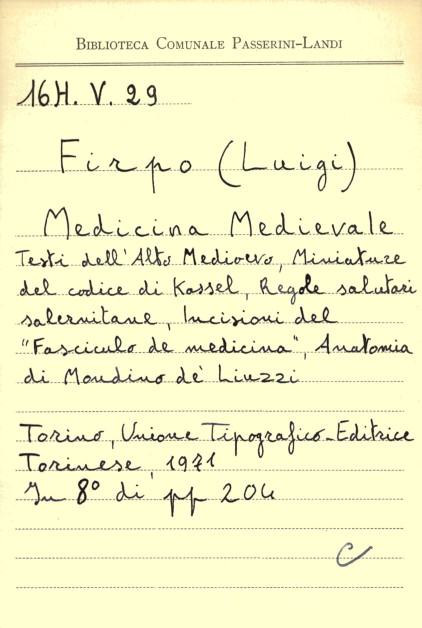 BIBLIOTECA COMUNALE PASSERINI-LANDI
16H. V. 29
Firpo (Luigi)
Medicina Medievale
Testi dell'Alto Medioevo, Miniature
del codice di Kassel, Regole salutari
salernitane, Incisioni del
"Fasciculo de medicina", Anatomia
di Mondino de' Liuzzi
Torino, Unione Tipografico-Editrice
Torinese, 1971
In 8° di pp 204
C